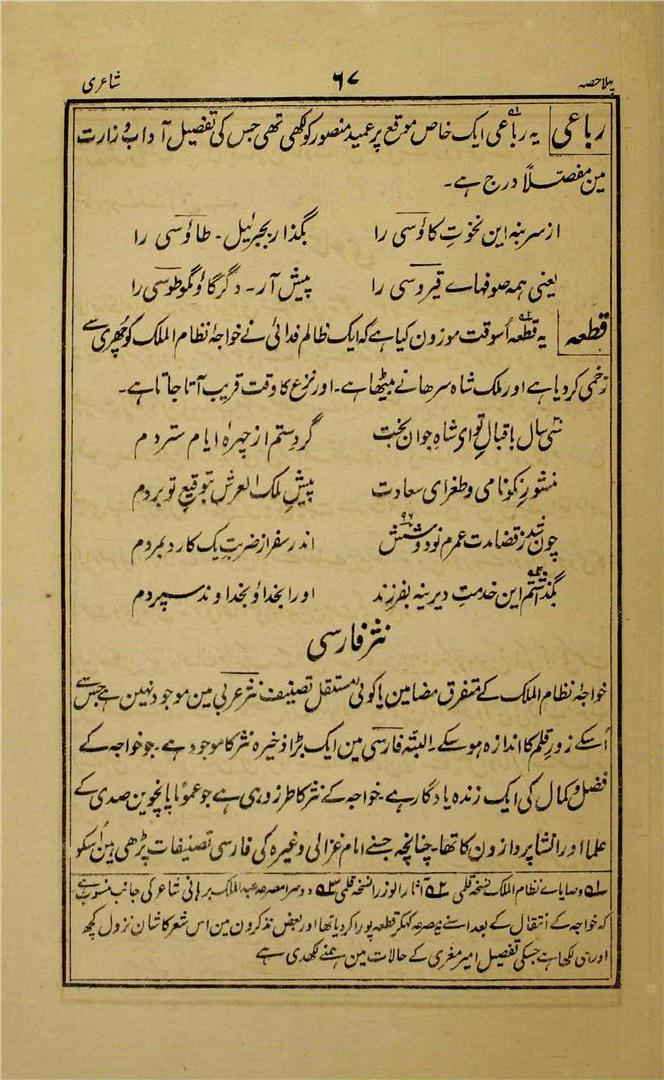 پہلا حصہ ۶۷ شاعری
رباعی یہ رباعی ایک خاص موقع پر عمید منصور کو لکھی تھی جس کی تفصیل آداب وزارت
مین مفصلاً درج ہے۔
از سر بنہ این نخوتِ کاؤسی را بگذار بجبرئیل۔ طاؤسی را
یعنی ہمہ صوفہاے قبروسی را پیش آر۔ دگر گاؤ مگو طوسی را
قطعہ یہ قطعہ اُسوقت موزون کیا ہے کہ ایک ظالم فدائی نے خواجہ نظام الملک کو چُھری سے
زخمی کر دیا ہے اور ملک شاہ سرھانے بیٹھا ہے۔ اور نزع کا وقت قریب آتا جاتا ہے۔
سی سال باقبالِ تو ای شاہِ جوان بخت گردِ ستم از چہرۂ ایام ستردم
منشورِ نکونامی و طغرای سعادت پیشِ ملک العرش بتوقیعِ تو بردم
چون شد ز قضا مدت عمرم نود و شش ۹۶ اندر سفر از ضربتِ یک کارد بمردم
بگذاشتم این خدمتِ دیرینہ بفرزند او را بخدا و بخداوند سپردم
نثر فارسی
خواجہ نظام الملک کے متفرق مضامین یا کوئی مستقل تصنیف نثر عربی مین موجود نہین ہے جس سے
اُسکے زورِ قلم کا اندازہ ہو سکے۔ البتہ فارسی مین ایک بڑا ذخیرہ نثر کا موجود ہے۔ جو خواجہ کے
فضل و کمال کی ایک زندہ یادگار ہے۔ خواجہ کے نثر کا طرز وہی ہے جو عموماً پانچوین صدی کے
علما اور انشا پردازون کا تھا۔ چنانچہ جسنے امام غزالی وغیرہ کی فارسی تصنیفات پڑھی ہین اُسکو
۵۱ وصایاے نظام الملک نسخہ قلمی ۵۲ آثار الوزرا نسخہ قلمی ۵۳ دوسرا مصرعہ عبد الملک برہانی شاعر کی جانب منسوب ہے
کہ خواجہ کے انتقال کے بعد اسنے یہ مصرعہ کہکر قطعہ پورا کر دیا تھا اور بعض تذکرون مین اس شعر کا شان نزول کچھ
اور ہی لکھا ہے جسکی تفصیل امیر معزی کے حالات مین ہمنے لکھدی ہے